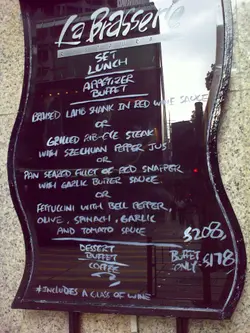 La Brasserie
SET
LUNCH
APPETIZER
BUFFET
BRAISED LAMB SHANK IN RED WINE SAUCE
OR
GRILLED RIB-EYE STEAK
WITH SZECHUAN PEPPER JUS
OR
PAN SEARED FILLET OF RED SNAPPER
WITH GARLIC BUTTER SAUCE
OR
FETTUCINI WITH BELL PEPPER,
OLIVE, SPINACH, GARLIC
AND TOMATO SAUCE
$208
DESSERT
BUFFET
COFFEE
BUFFET
ONLY $178
*INCLUDES A GLASS OF WINE